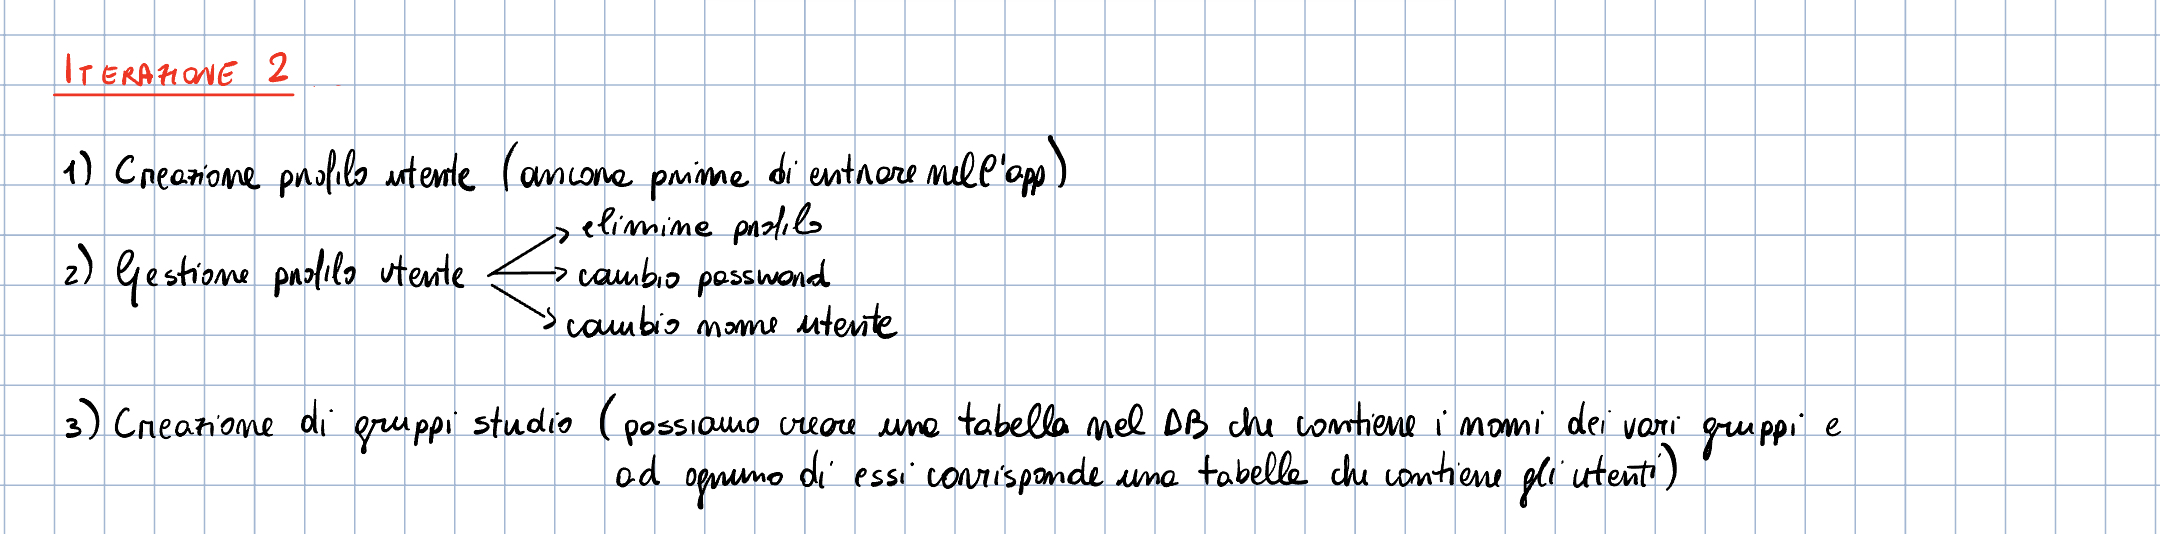 ITERAZIONE 2
1) Creazione profilo utente (ancora prima di entrare nell'app)
elimina profilo
2) Gestione profilo utente → cambio password
cambio nome utente
3) Creazione di gruppi studio (possiamo creare una tabella nel DB che contiene i nomi dei vari gruppi e
ad ognuno di essi corrisponde una tabella che contiene gli utenti)